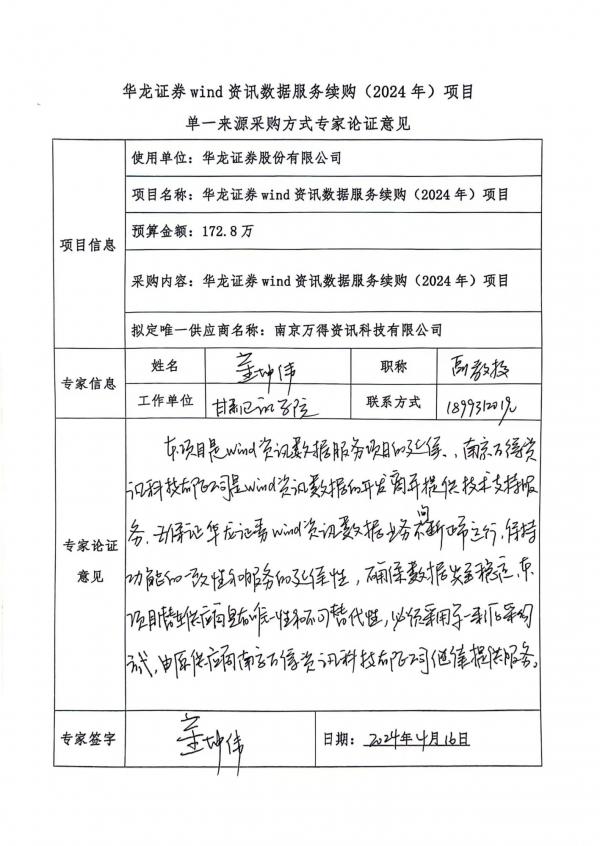 华龙证券 wind 资讯数据服务续购（2024 年）项目
单一来源采购方式专家论证意见
项目信息
使用单位：华龙证券股份有限公司
项目名称：华龙证券 wind 资讯数据服务续购（2024 年）项目
预算金额：172.8 万
采购内容：华龙证券 wind 资讯数据服务续购（2024 年）项目
拟定唯一供应商名称：南京万得资讯科技有限公司
专家信息
姓名 董坤伟 职称 副教授
工作单位 甘肃 学院 联系方式
专家论证
意见
本项目是wind资讯数据服务项目的延续、南京万得资
讯科技有限公司是wind资讯数据的开发商并提供技术支持服
务。为保证华龙证券wind资讯数据业务不间断正常运行，保持
功能的一致性和服务的延续性，确保数据安全稳定，本
项目 供应商具有唯一性和不可替代性，必须采用单一来源采购
方式，由原供应商南京万得资讯科技有限公司继续提供服务。
专家签字 董坤伟 日期：2024年4月16日